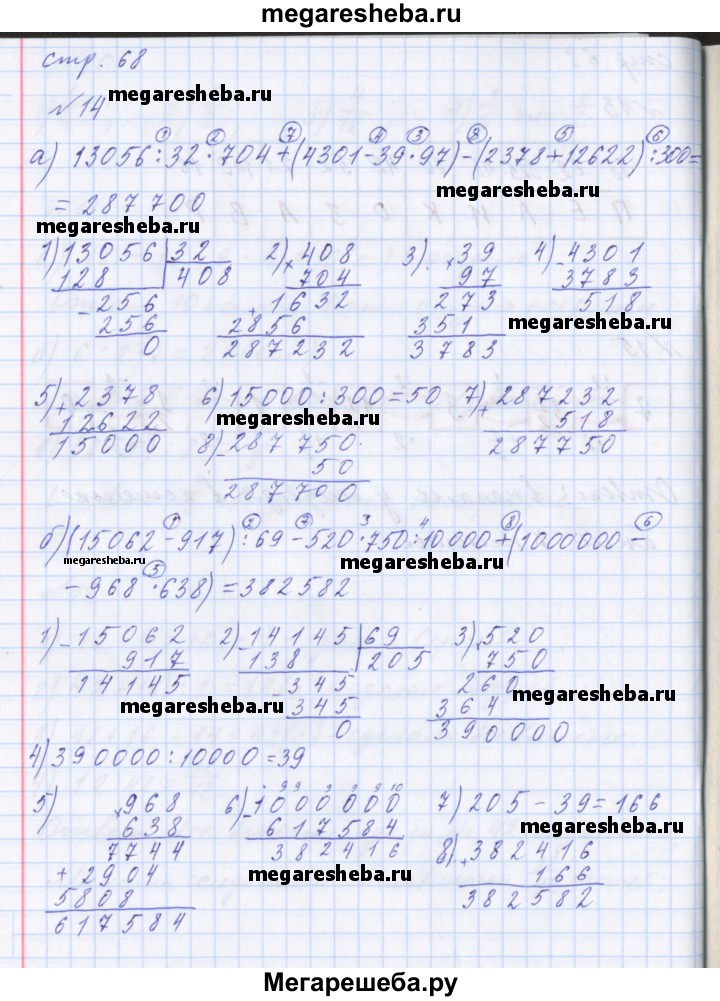 megaresheba.ru
стр. 68
№ 14 megaresheba.ru
① ② ⑦ ④ ③ ⑧ ⑤ ⑥
а) 13056:32·704+(4301-39·97)-(2378+12622):300=
megaresheba.ru
= 287700
megaresheba.ru
1) 13056 | 32 2) × 408 3) × 39 4) - 4301
128 | 408 704 97 3783
- 256 + 1632 273 518
256 2856 351 megaresheba.ru
0 287232 3783
5) + 2378 6) 15000:300=50 7) + 287232
12622 megaresheba.ru 518
15000 8) - 287750 287750
50
287700
① ② ⑦ 3 4 ⑧ ⑥
б) (15062-917):69-520·750:10.000+(1000000-
megaresheba.ru megaresheba.ru
⑤
- 968·638) = 382582
1) - 15062 2) - 14145 | 69 3) × 520
917 138 | 205 750
14145 - 345 260 megaresheba.ru
megaresheba.ru 345 364
0 390000
4) 390000:10000=39
5) × 968 6) - 1000000 7) 205-39=166
638 617584 megaresheba.ru
7744 382416 8) + 382416
+ 2904 megaresheba.ru 166
5808 382582
617584
Мегарешеба.ру